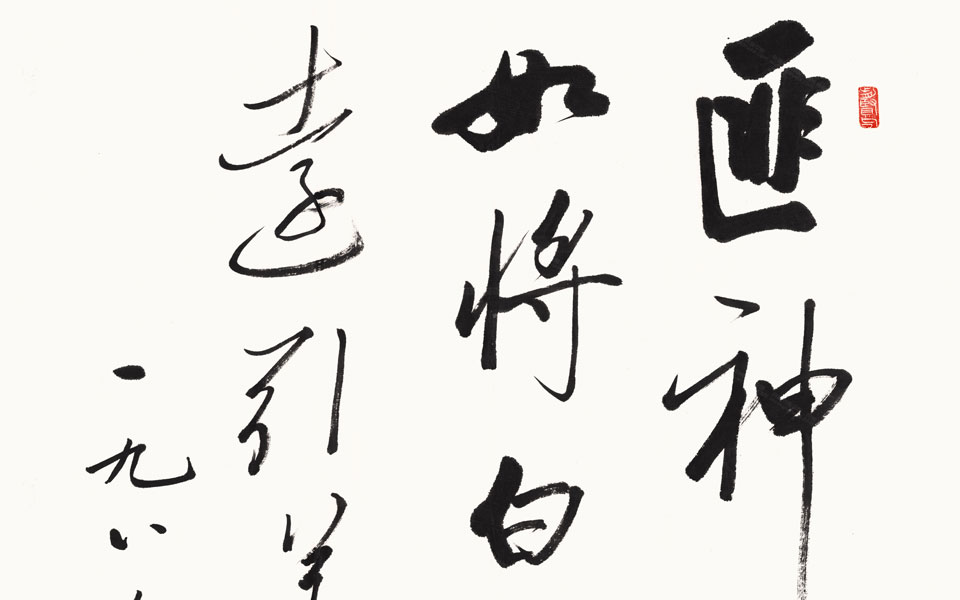 匪神
如將白
遠引
一九八